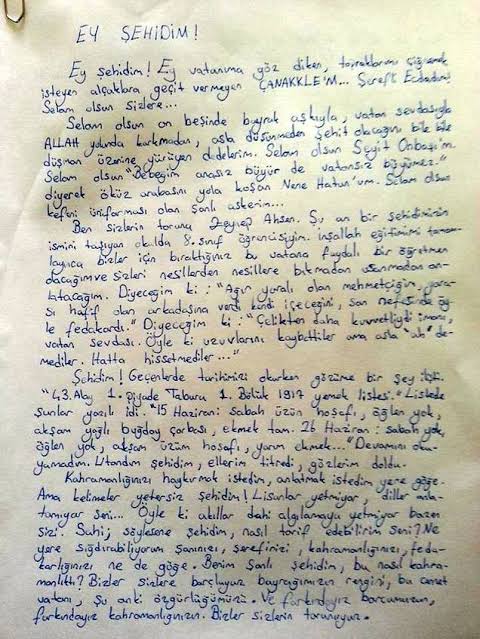 EY ŞEHİDİM!
Ey şehidim! Ey vatanıma göz diken, topraklarımı çiğnemek
isteyen alçaklara geçit vermeyen ÇANAKKLE'M... Şerefli Ecdadım!
Selam olsun sizlere...
Selam olsun on beşinde bayrak aşkıyla, vatan sevdasıyla
ALLAH yolunda korkmadan, asla düşünmeden şehit olacağını bile bile
düşman üzerine yürüyen dedelerim. Selam olsun Seyit Onbaşı'm.
Selam olsun "Bebeğim anasız büyür de vatansız büyümez."
diyerek öküz arabasını yola koşan Nene Hatun'um. Selam olsun
kefni üniforması olan şanlı askerim...
Ben sizlerin torunu Zeynep Ahsen. Şu an bir şehidimizin
ismini taşıyan okulda 8.sınıf öğrencisiyim. İnşallah eğitimimi tamam-
layınca bizler için bıraktığınız bu vatana faydalı bir öğretmen
olacağım ve sizleri nesillerden nesillere bıkmadan usanmadan an-
latacağım. Diyeceğim ki: "Ağır yaralı olan mehmetçiğim, yara-
sı hafif olan arkadaşına verdi kendi içeceğini, son nefesinde öy-
le fedakardı." Diyeceğim ki: "Çelikten daha kuvvetliydi imanı,
vatan sevdası. Öyle ki uzuvlarını kaybettiler ama asla "ah" de-
mediler. Hatta hissetmediler..."
Şehidim! Geçenlerde tarihimizi okurken gözüme bir şey ilişti.
"43.Alay 1. Piyade Taburu 1. Bölük 1917 yemek listesi." Listede
şunlar yazılı idi. "15 Haziran: sabah üzün hoşafı, öğlen yok,
akşam yağlı buğday çorbası, ekmek tam. 26 Haziran: sabah yok,
öğlen yok, akşam üzüm hoşafı, yarım ekmek..." Devamını oku-
yamadım. Utandım şehidim, ellerim titredi, gözlerim doldu.
Kahramanlığınızı haykırmak istedim, anlatmak istedim yere göğe.
Ama kelimeler yetersiz şehidim! Lisanlar yetmiyor, diller anla-
tamıyor seni... Öyle ki akıllar dahi algılamaya yetmiyor bazen
sizi. Sahi, söylesene şehidim, nasıl tarif edebilirim seni? Ne
yere sığdırabiliyorum şanınızı, şerefinizi, kahramanlığınızı, feda-
karlığınızı ne de göğe. Benim Şanlı şehidim, bu nasıl kahra-
manlıth? Bizler sizlere borçluyuz bayrağımızın rengini, bu cennet
vatanı, şu anki özgürlüğümüzü. Ve farkındayız borcumuzun,
farkındayız kahramanlığınızın. Bizler sizlerin torunuyuz.